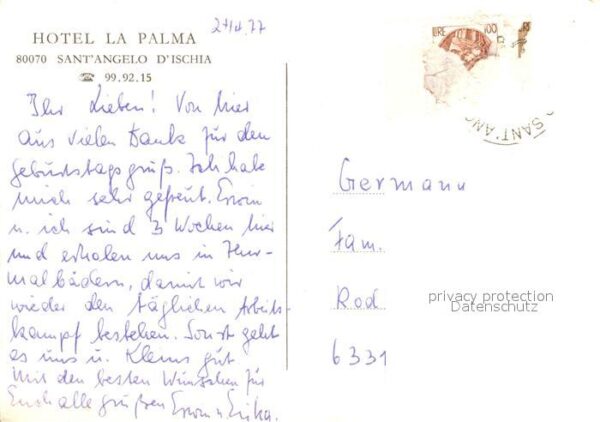 HOTEL LA PALMA
80070 SANT'ANGELO D'ISCHIA
☎ 99.92.15
Ihr Lieben! Von hier
aus vielen Dank für den
Geburtstagsgruß. Ich hab
mich sehr gefreut. Erwin
u. ich sind 3 Wochen hier
und erholen uns in Ther-
malbädern, damit wir
wieder den täglichen Arbeits-
kampf bestehen. Sonst geht
es uns u. Kleins gut.
Mit den besten Wünschen für
Euch alle grüßen Erwin u. Erika.
LIRE 100
SANT'ANG
Germany
Fam.
Rod
6331
privacy protection
Datenschutz